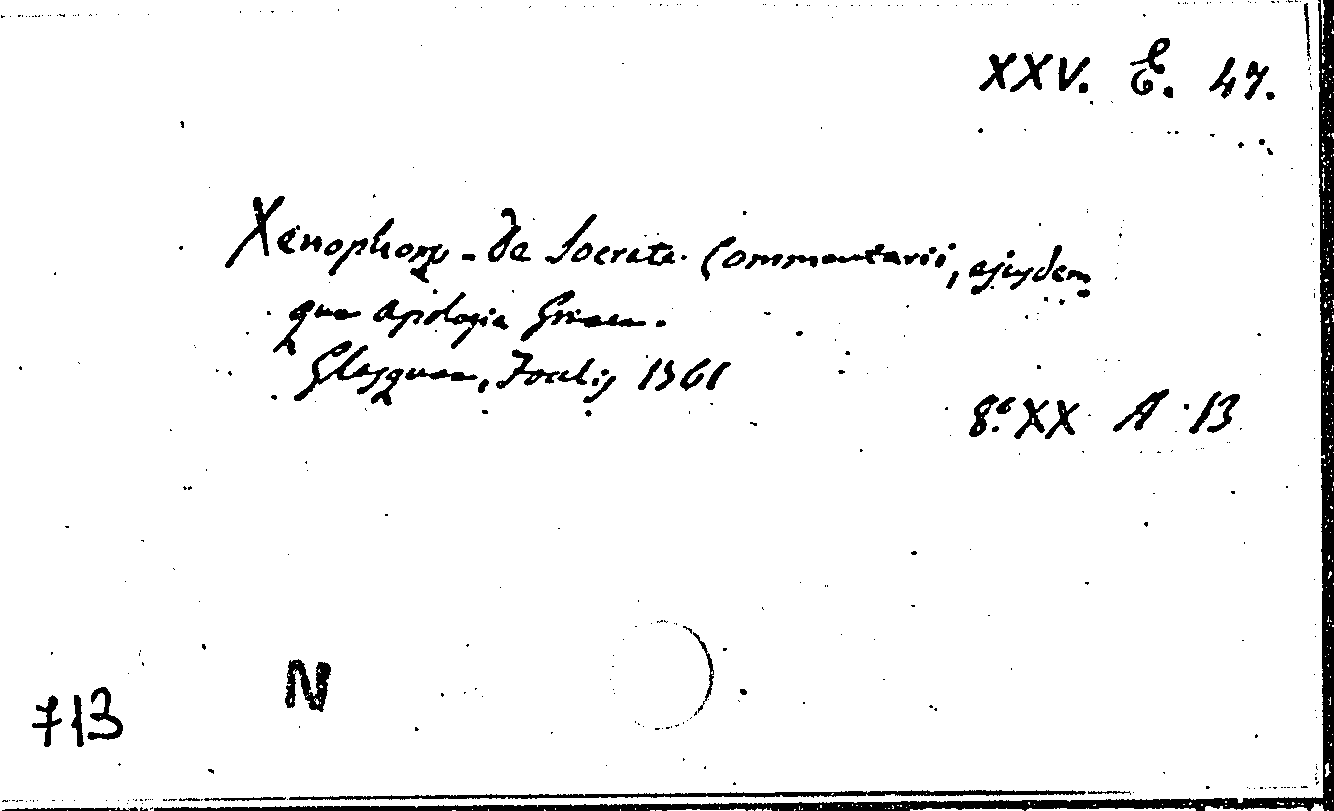 XXV. E. 47.
Xenophon - De Socrate Commentarii, ejusdem
que Apologia Graece.
Glasquae, Foulis 1761
8.° XX A 13
N
713